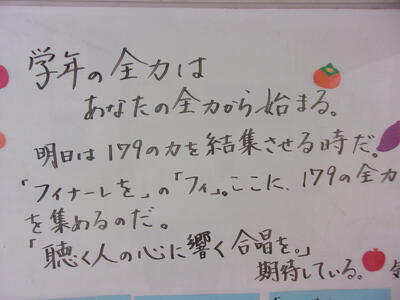 学年の全力は
あなたの全力から始まる。
明日は179の力を結集させる時だ。
「フィナーレを」の「フィ」。ここに、179の全力
を集めるのだ。
「聴く人の心に響く合唱を。」
期待している。